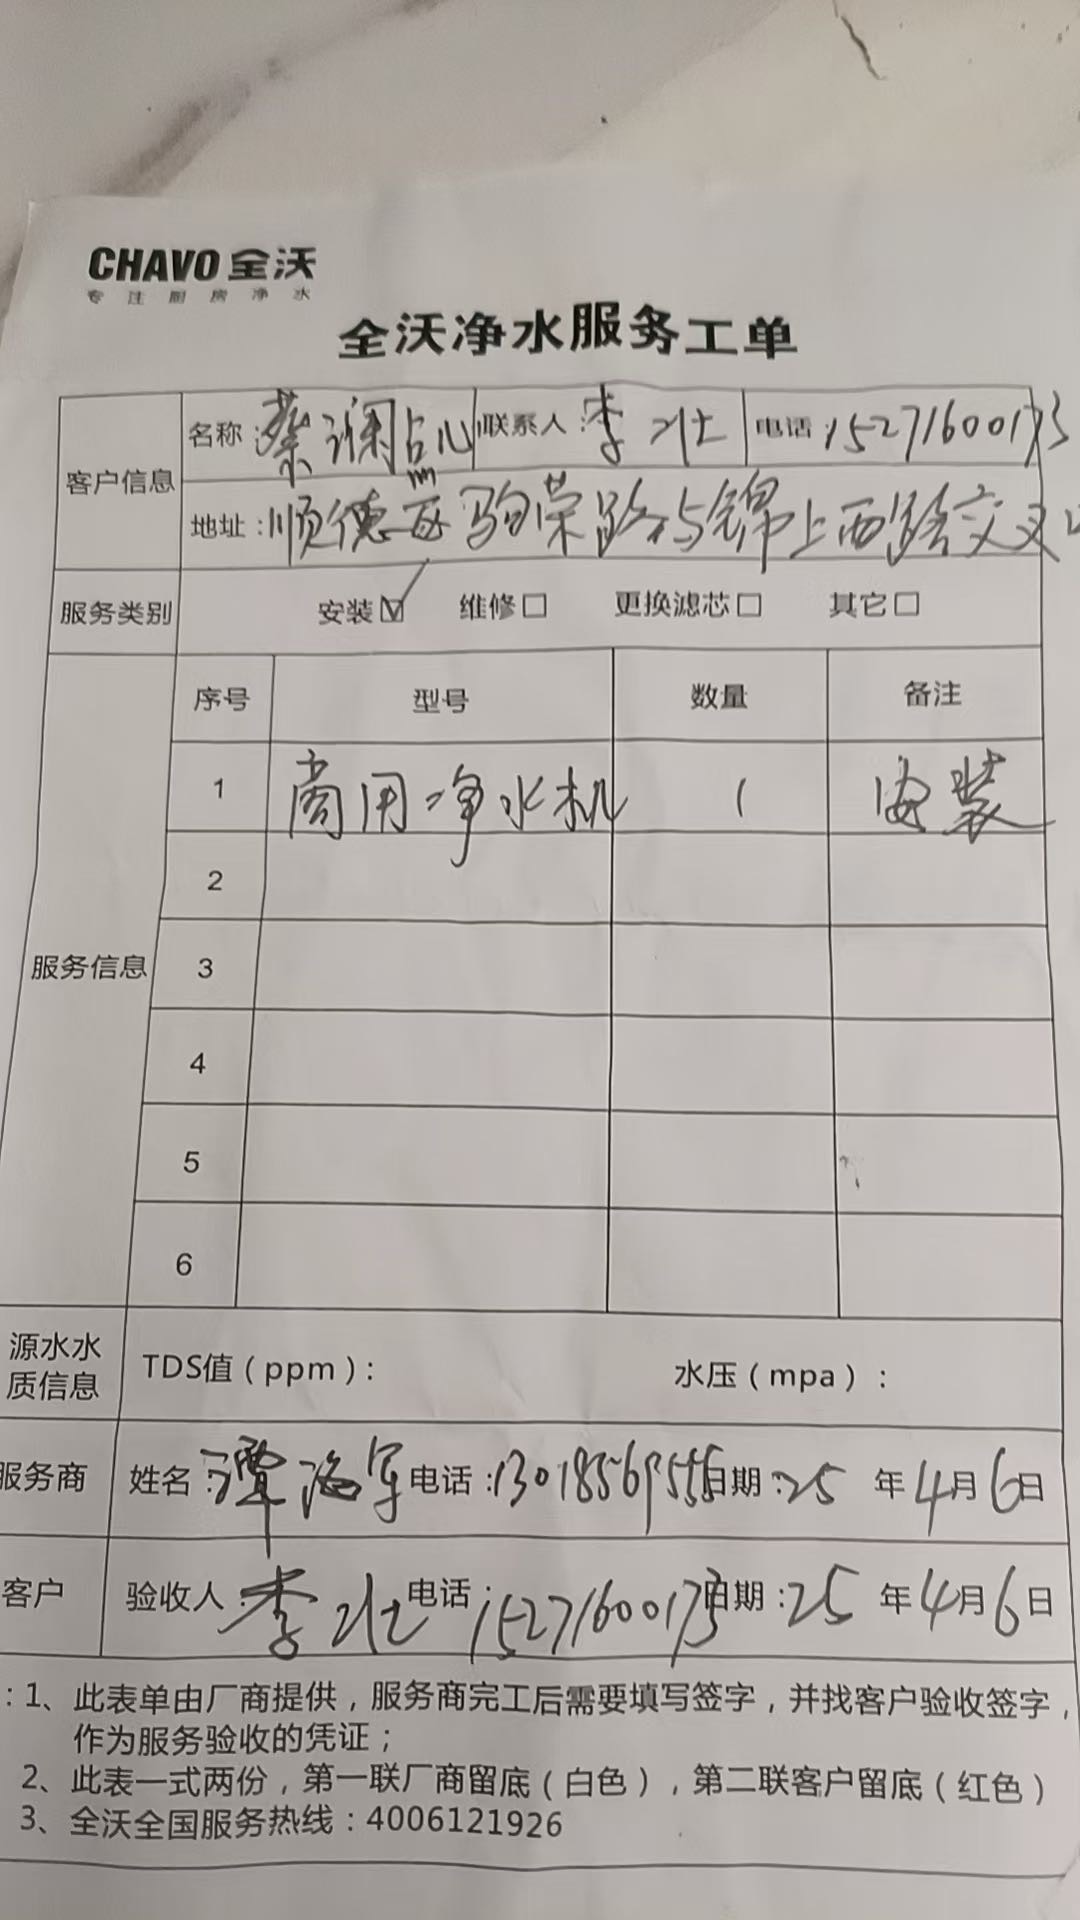 CHAVO 全沃
专注厨房净水
全沃净水服务工单
客户信息
名称：蔡澜点心 联系人：李壮 电话：15271600173
地址：顺德区 驹荣路与锦上西路交叉口
服务类别 安装☑ 维修□ 更换滤芯□ 其它□
服务信息
序号 型号 数量 备注
1 商用净水机 1 安装
2
3
4
5
6
源水水质信息 TDS值（ppm）： 水压（mpa）：
服务商 姓名：谭海军 电话：13018569555 日期：25年4月6日
客户 验收人：李壮 电话：15271600173 日期：25年4月6日
：1、此表单由厂商提供，服务商完工后需要填写签字，并找客户验收签字，
作为服务验收的凭证；
2、此表一式两份，第一联厂商留底（白色），第二联客户留底（红色）
3、全沃全国服务热线：4006121926